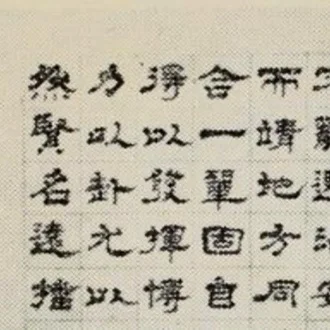 而靖地方同
合一單固自
得以發揮博
力以赴尤以
然賢名遠播